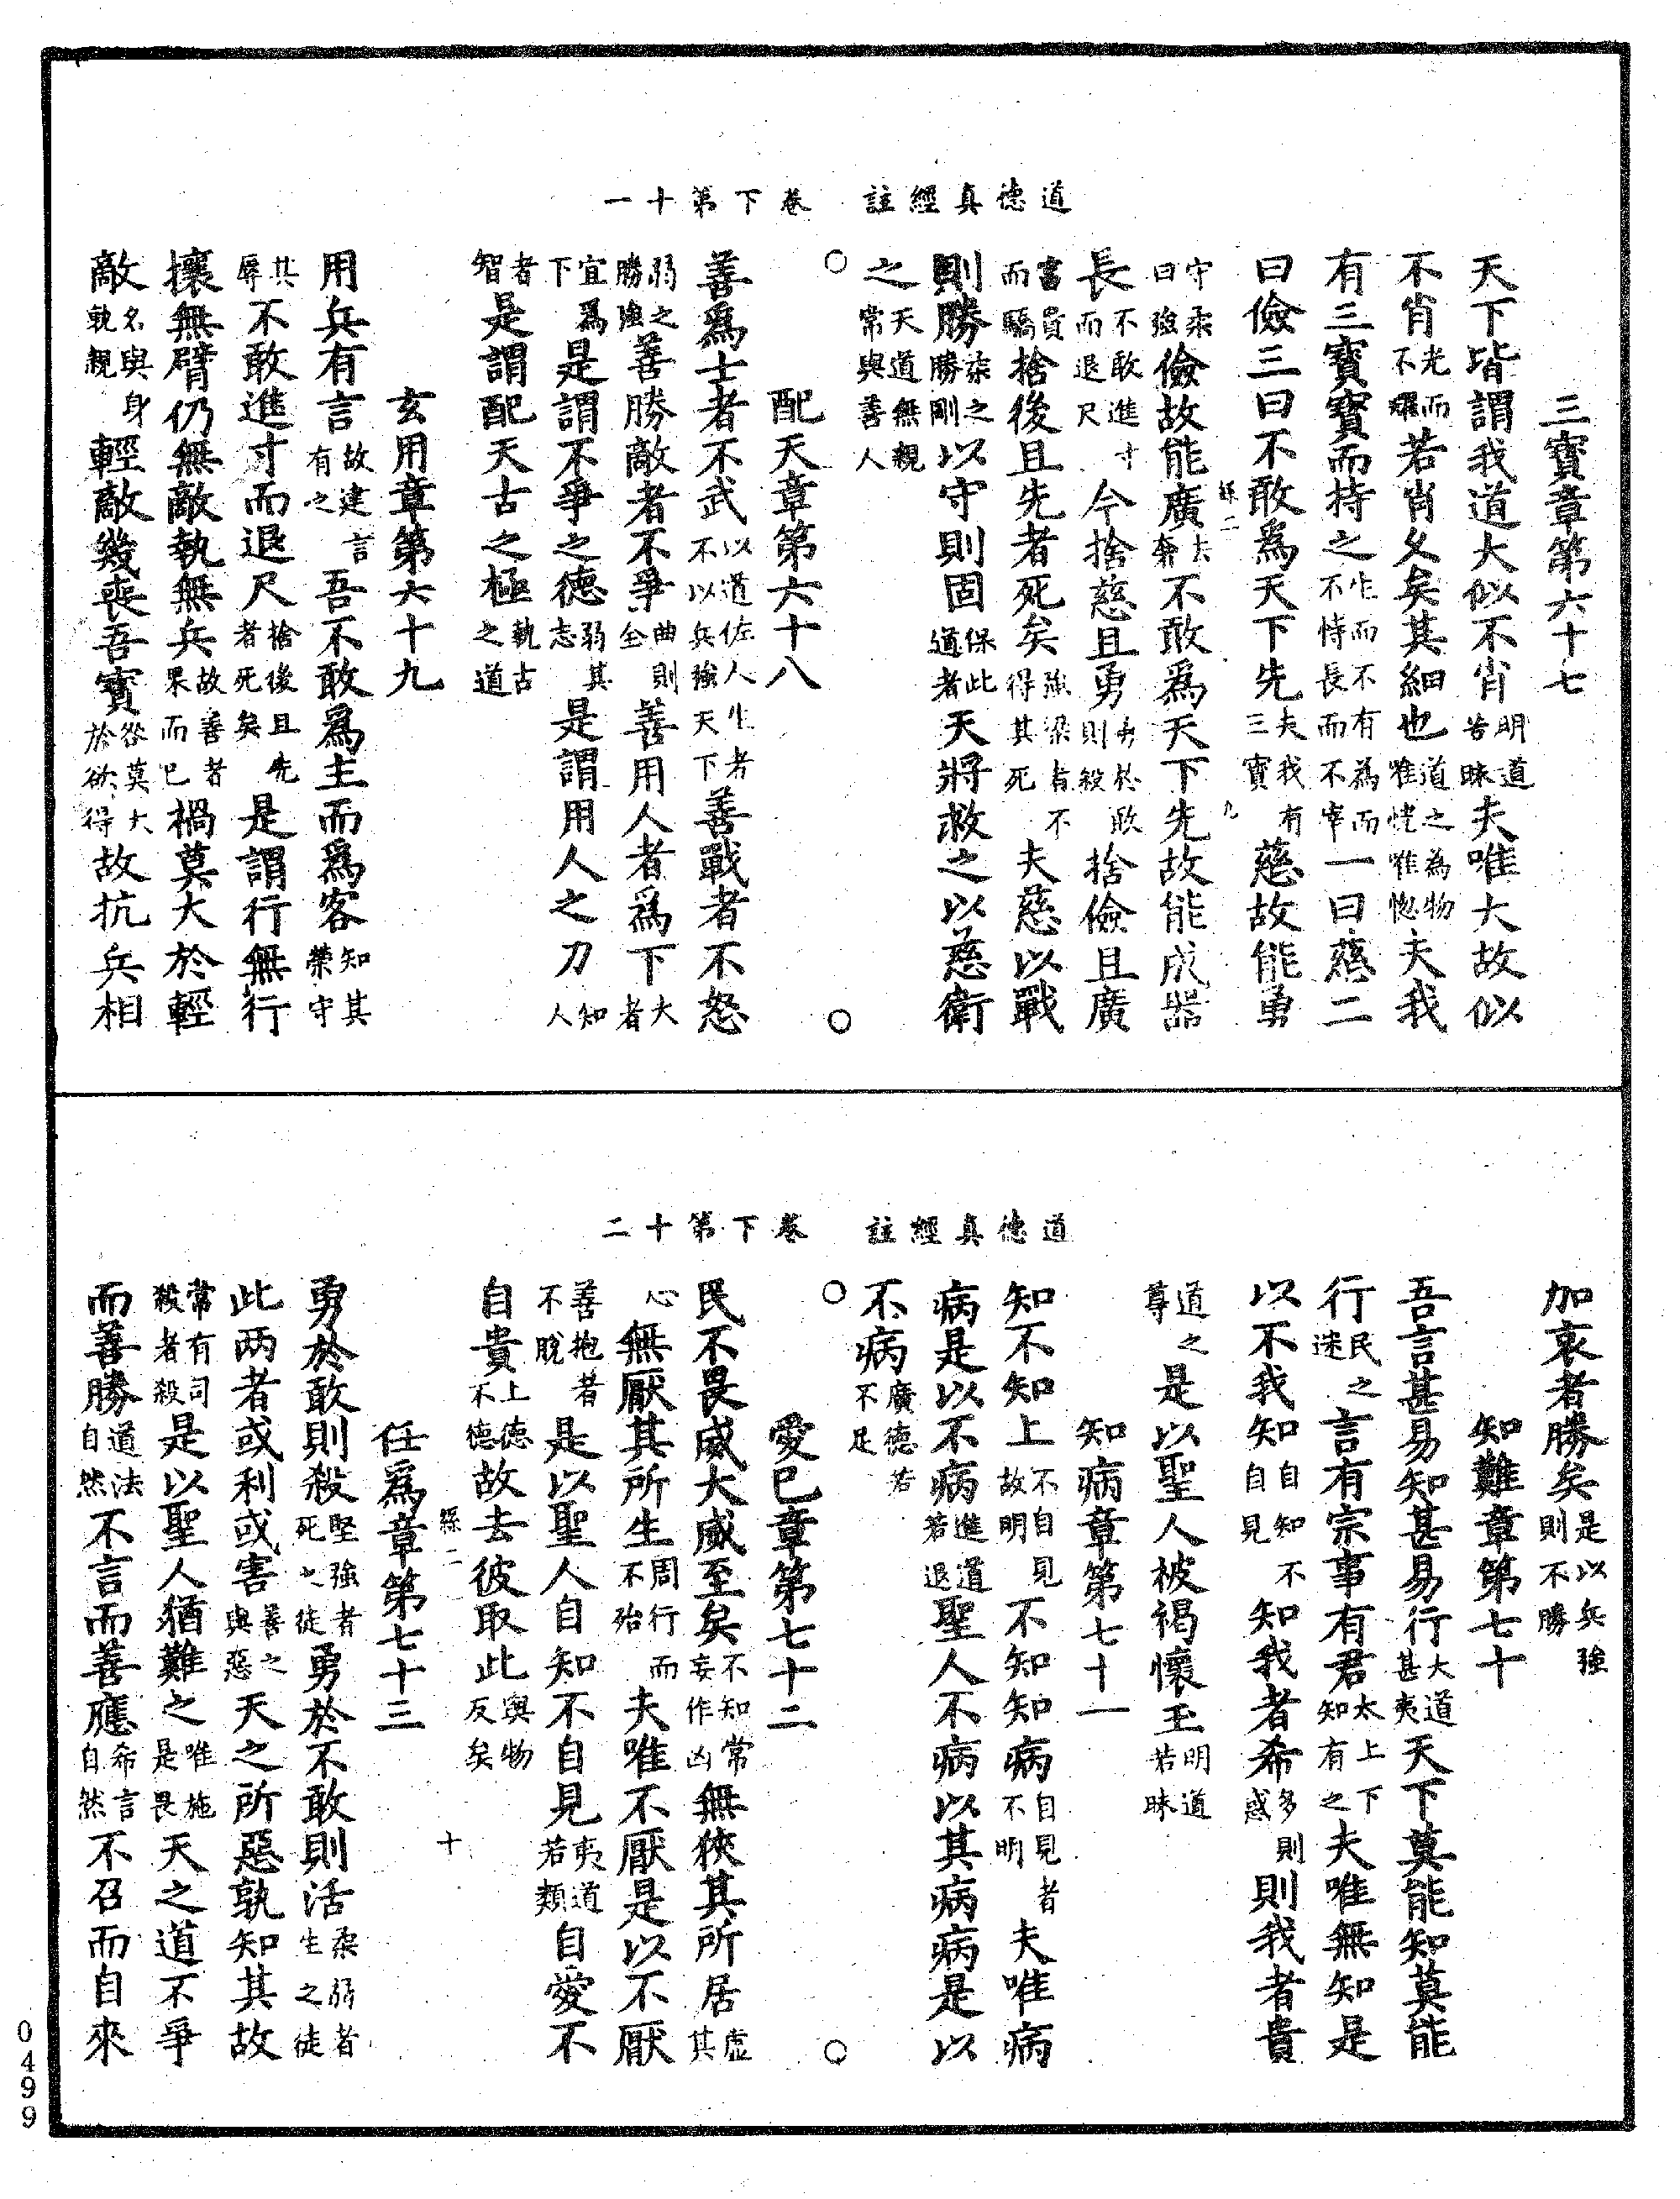 道德真經註　卷下第十一
三寶章第六十七
天下皆謂我道大似不肖明道若昧夫唯大故似
不肖光而不耀若肖久矣其細也道之為物唯恍唯惚夫我
有三寶寶而持之生而不有為而不恃長而不宰一曰慈二
曰儉三曰不敢爲天下先夫我有三寶慈故能勇
二　九
守柔曰強儉故能廣去奢不敢爲天下先故能成器
長不敢進寸而退尺今捨慈且勇勇於敢則殺捨儉且廣
富貴而驕捨後且先者死矣強梁者不得其死夫慈以戰
則勝柔之勝剛以守則固保此道者天將救之以慈衛
之天道無親常與善人
配天章第六十八
善爲士者不武以道佐人生者不以兵強天下善戰者不怒
弱之勝強善勝敵者不爭曲則全善用人者爲下大者
宜爲下是謂不爭之德弱其志是謂用人之力知人
者智是謂配天古之極執古之道
玄用章第六十九
用兵有言故建言有之吾不敢爲主而爲客知其榮守
其辱不敢進寸而退尺捨後且先者死矣是謂行無行
攘無臂仍無敵執無兵故善者果而已禍莫大於輕
敵名與身孰親輕敵幾喪吾寶咎莫大於欲得故抗兵相
道德真經註　卷下第十二
加哀者勝矣是以兵強則不勝
知難章第七十
吾言甚易知甚易行大道甚夷天下莫能知莫能
行民之迷言有宗事有君太上下知有之夫唯無知是
以不我知自知不自見知我者希多則惑則我者貴
道之尊是以聖人被褐懷玉明道若昧
知病章第七十一
知不知上不自見故明不知知病自見者不明夫唯病
病是以不病進道若退聖人不病以其病病是以
不病廣德若不足
愛已章第七十二
民不畏威大威至矣不知常妄作凶無狹其所居虛其
心無厭其所生周行而不殆夫唯不厭是以不厭
善抱者不脫是以聖人自知不自見夷道若類自愛不
自貴上德不德故去彼取此與物反矣
二　十
任爲章第七十三
勇於敢則殺堅強者死之徒勇於不敢則活柔弱者生之徒
此两者或利或害善之與惡天之所惡孰知其故
常有司殺者殺是以聖人猶難之唯施是畏天之道不爭
而善勝道法自然不言而善應希言自然不召而自來
0499